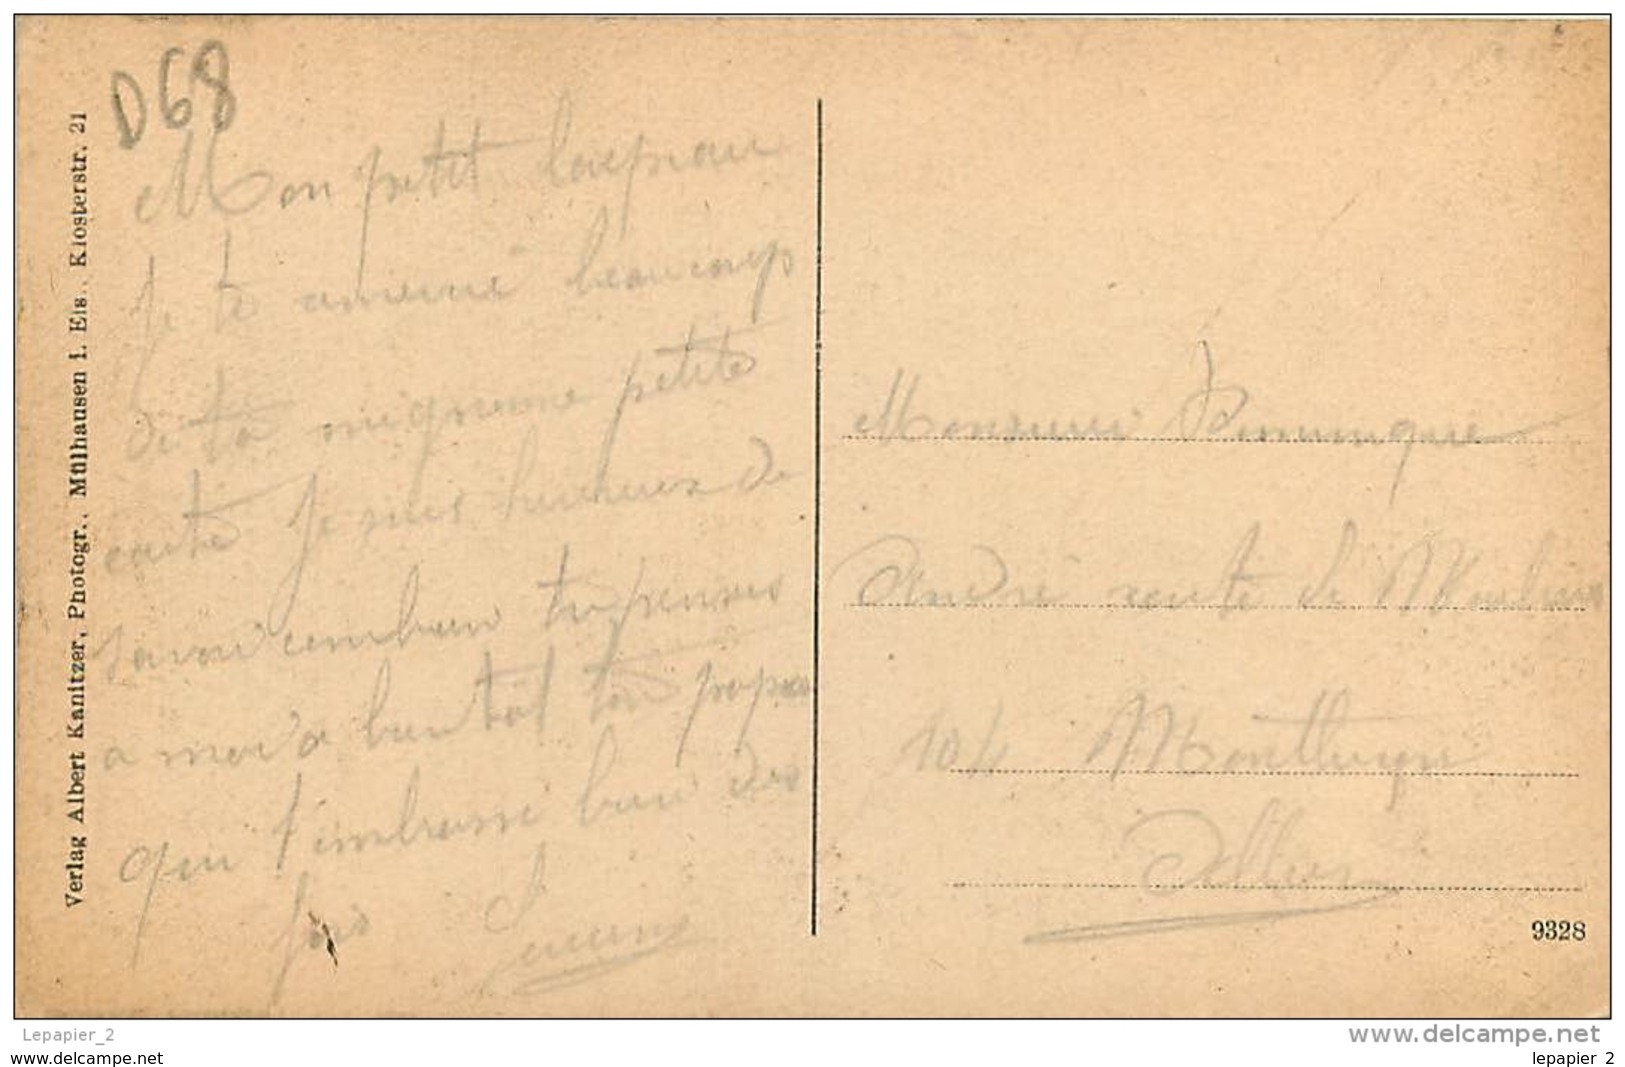 D68
Mon petit
Je te remercie beaucoup
de ta mignonne petite
carte Je suis heureux de
savoir combien tu penses
a moi a bientôt ton papa
qui t'embrasse bien des
fois Lucien
Verlag Albert Kanitzer, Photogr., Mülhausen i. Els., Klosterstr. 21
Monsieur Dominique
André route de Moulins
104 Montluçon
Allier
9328
Lepapier_2
www.delcampe.com
www.delcampe.net
lepapier 2